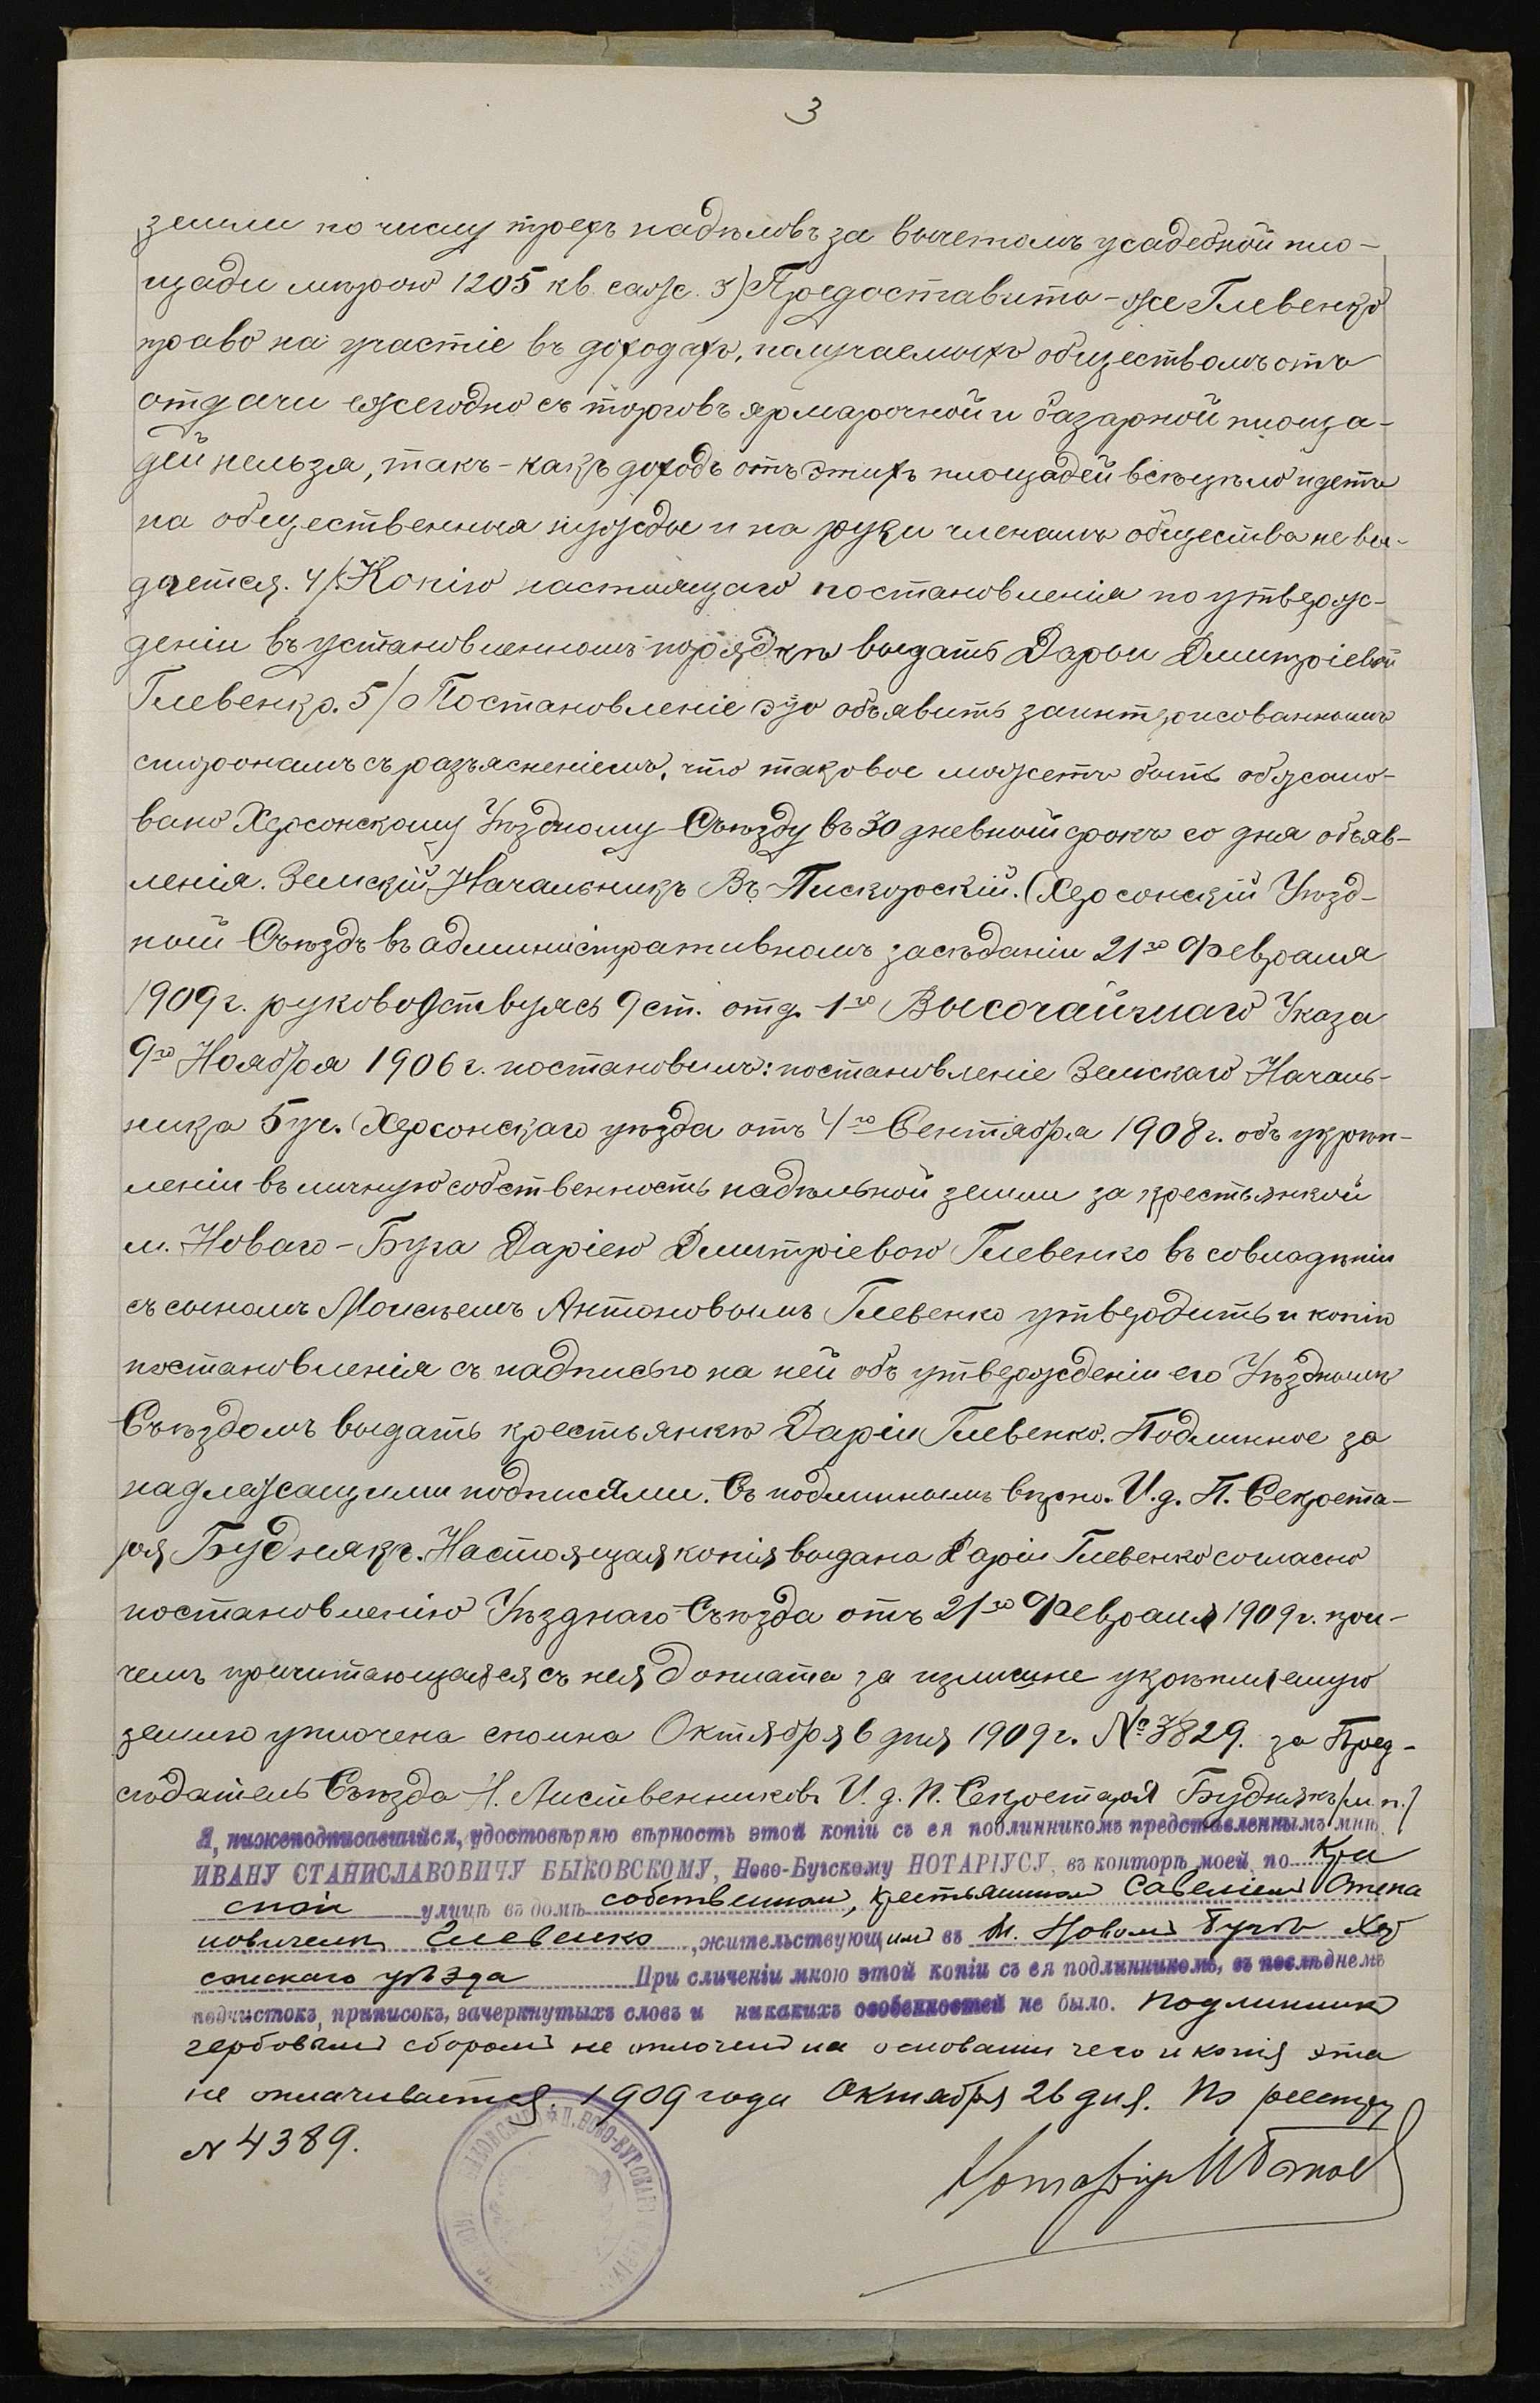 3
земли по числу трехъ надѣловъ за вычетомъ усадебной пло-
щади мѣрою 1205 кв. саж. 3) Предоставить-же Глевенко
право на участіе въ доходахъ, получаемыхъ обществомъ отъ
отдачи ежегодно съ торговъ ярмарочной и базарной площа-
дей нельзя, такъ-какъ доходъ отъ этихъ площадей всѣцѣло идетъ
на общественныя нужды и на руки членамъ общества не вы-
дается. 4/ Копію настоящаго постановленія по утверж-
деніи въ установленномъ порядкѣ выдать Дарьи Дмитріевой
Глевенко. 5/ Постановленіе это объявить заинтерисованнымъ
сторонамъ съ разъясненіемъ, что таковое можетъ быть обжало-
вано Херсонскому Уѣздному Съѣзду въ 30 дневный срокъ со дня объяв-
ленія. Земскій Начальникъ В. Пискорскій. Херсонскій Уѣзд-
ный Съѣздъ въ административномъ засѣданіи 21го Февраля
1909 г. руководствуясь 9 ст. отд. 1го Высочайшаго Указа
9го Ноября 1906 г. постановилъ: постановленіе Земскаго Началь-
ника 5 уч. Херсонскаго уѣзда отъ 4го Сентября 1908 г. объ укрѣп-
леніи въ личную собственность надѣльной земли за крестьянкой
м. Новаго-Буга Даріею Дмитріевою Глевенко въ совладѣніи
съ сыномъ Моисѣемъ Антоновымъ Глевенко утвердить и копію
постановленія съ надписью на ней объ утвержденіи его Уѣзднымъ
Съѣздомъ выдать крестьянкѣ Даріи Глевенко. Подлинное за
надлежащими подписями. Съ подлиннымъ вѣрно. И.д. П. Секрета-
ря Буднякъ. Настоящая копія выдана Даріи Глевенко согласно
постановленію Уѣзднаго Съѣзда отъ 21го Февраля 1909 г. при-
чемъ причитающаяся съ нея доплата за излишне укрѣпляемую
землю уплочена сполна Октября 6 дня 1909 г. № 3829. за Пред-
сѣдатель Съѣзда Н. Лиственниковъ И.д. П. Секретаря Буднякъ /м.п./
Я, нижеподписавшійся, удостовѣряю вѣрность этой копіи съ ея подлинникомъ представленнымъ мнѣ,
ИВАНУ СТАНИСЛАВОВИЧУ БЫКОВСКОМУ, Ново-Бугскому НОТАРІУСУ, въ конторѣ моей, по Кра
сной улицѣ въ домѣ собственномъ, крестьяниномъ Савеліемъ Степа
новичемъ Глевенко, жительствующимъ въ м. Новомъ Бугѣ Хер
сонскаго уѣзда При сличеніи мною этой копіи съ ея подлинникомъ, въ послѣднемъ
подчистокъ, приписокъ, зачеркнутыхъ словъ и никакихъ особенностей не было. Подлинникъ
гербовымъ сборомъ не оплоченъ на основаніи чего и копія эта
не оплачивается. 1909 года Октября 26 дня. По реестру
№ 4389.
Нотаріусъ